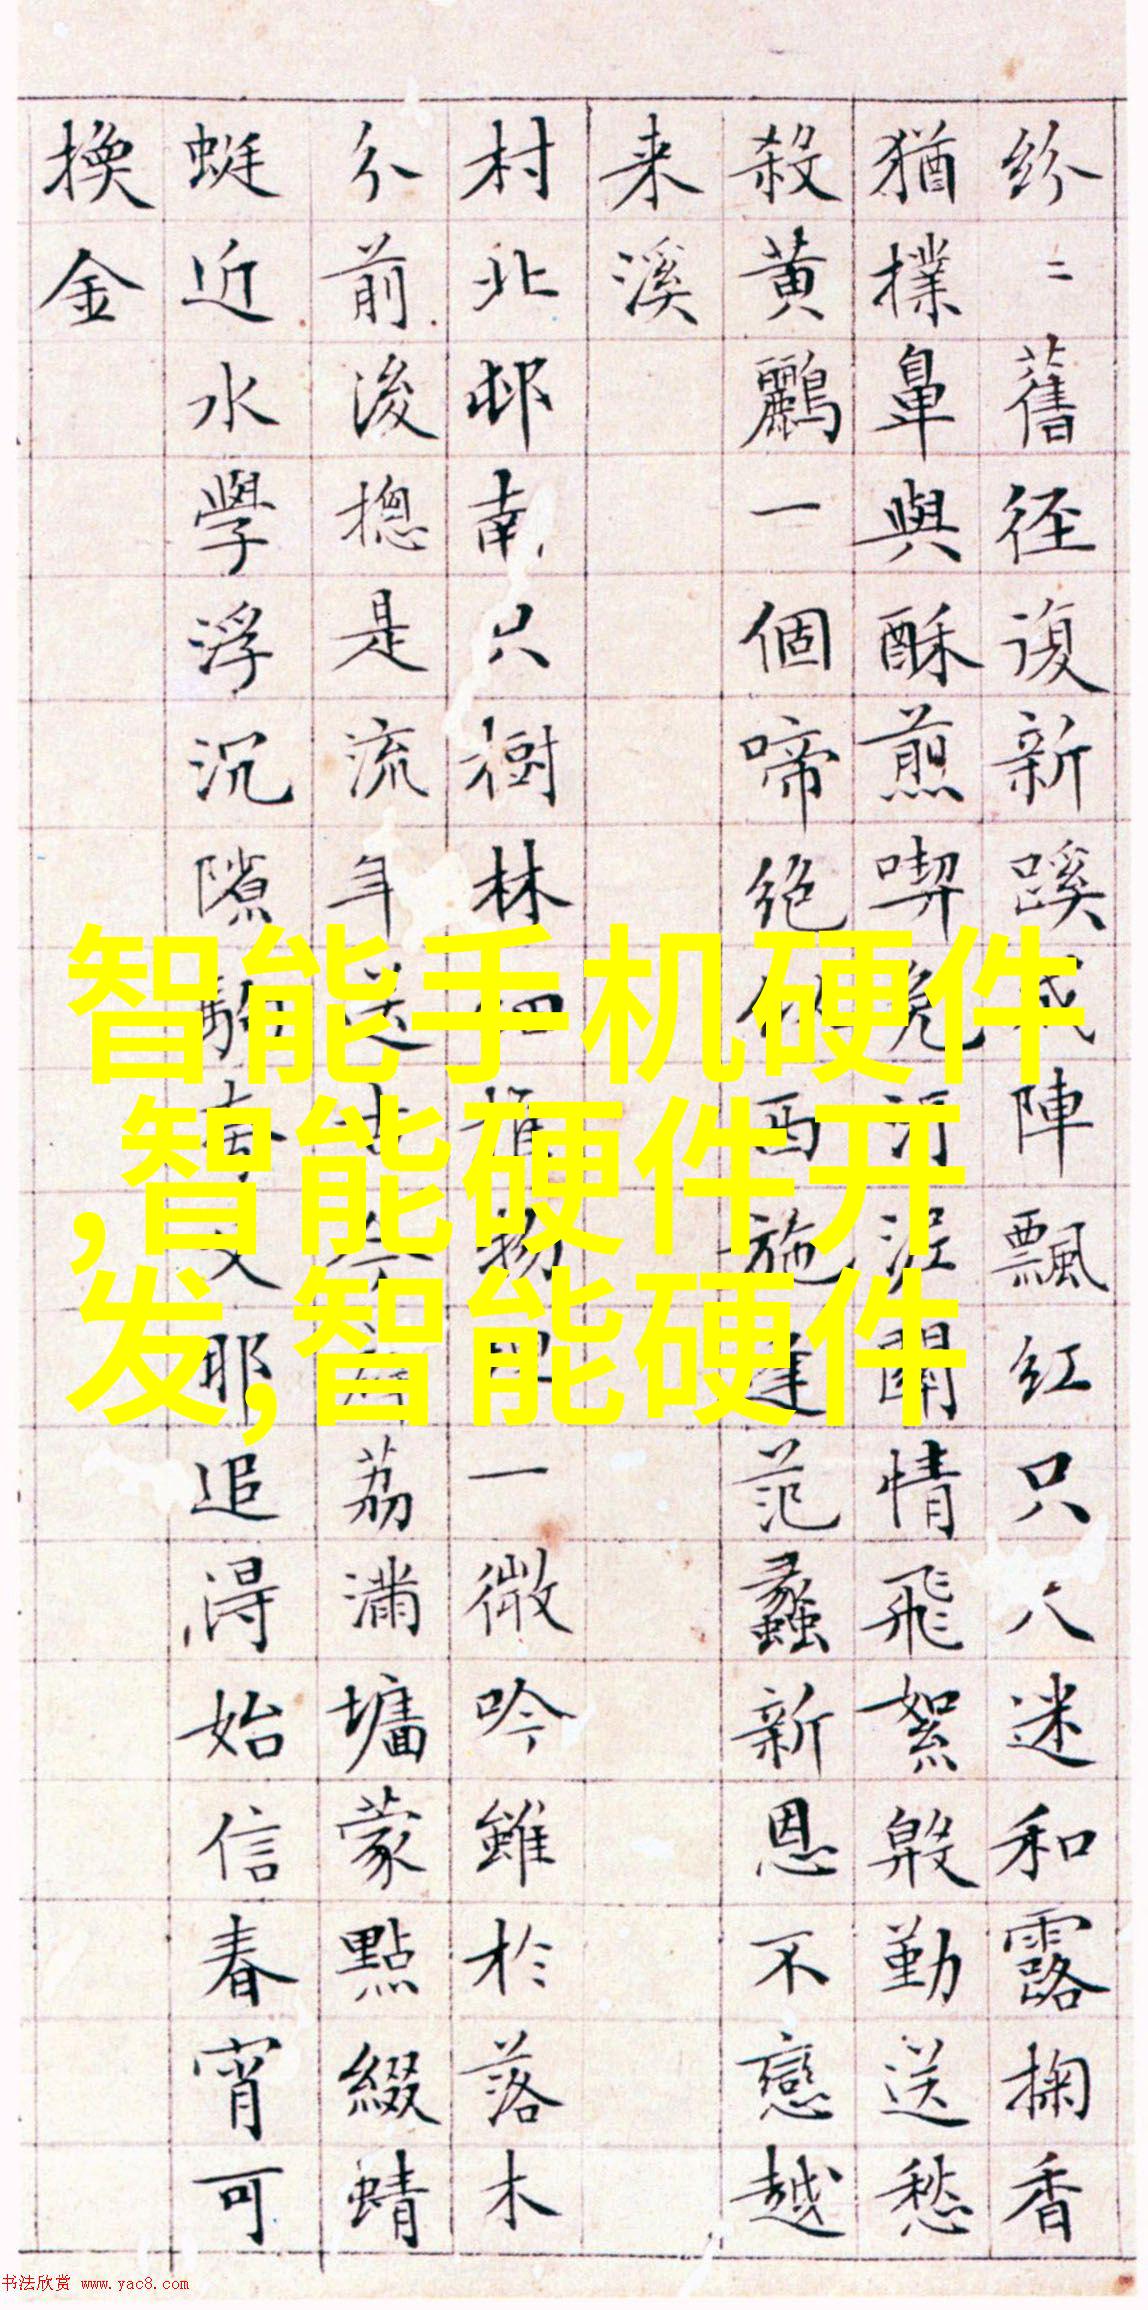 紛二舊徑復新蹊陣飄紅只迷和露掬香
猶撲鼻與酥煎喫免泥情飛絮殷勤送愁
殺黃鸝一個啼絶西施逢范蠡新恩不戀越
来溪
村北邨南只樹林細推物理一微吟雖於落木
分前後揔是流年送古今荔滿墉蒙點綴蜻
蜓近水學浮沉隙駒耶追得始信春宵可
換金
智能手机硬件
,智能硬件开
发,智能硬件
书法欣赏 www.yac8.com